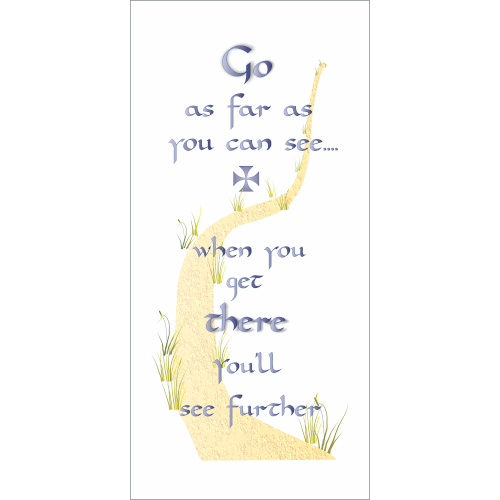 Go
as far as
you can see....
when you
get
there
you'll
see further